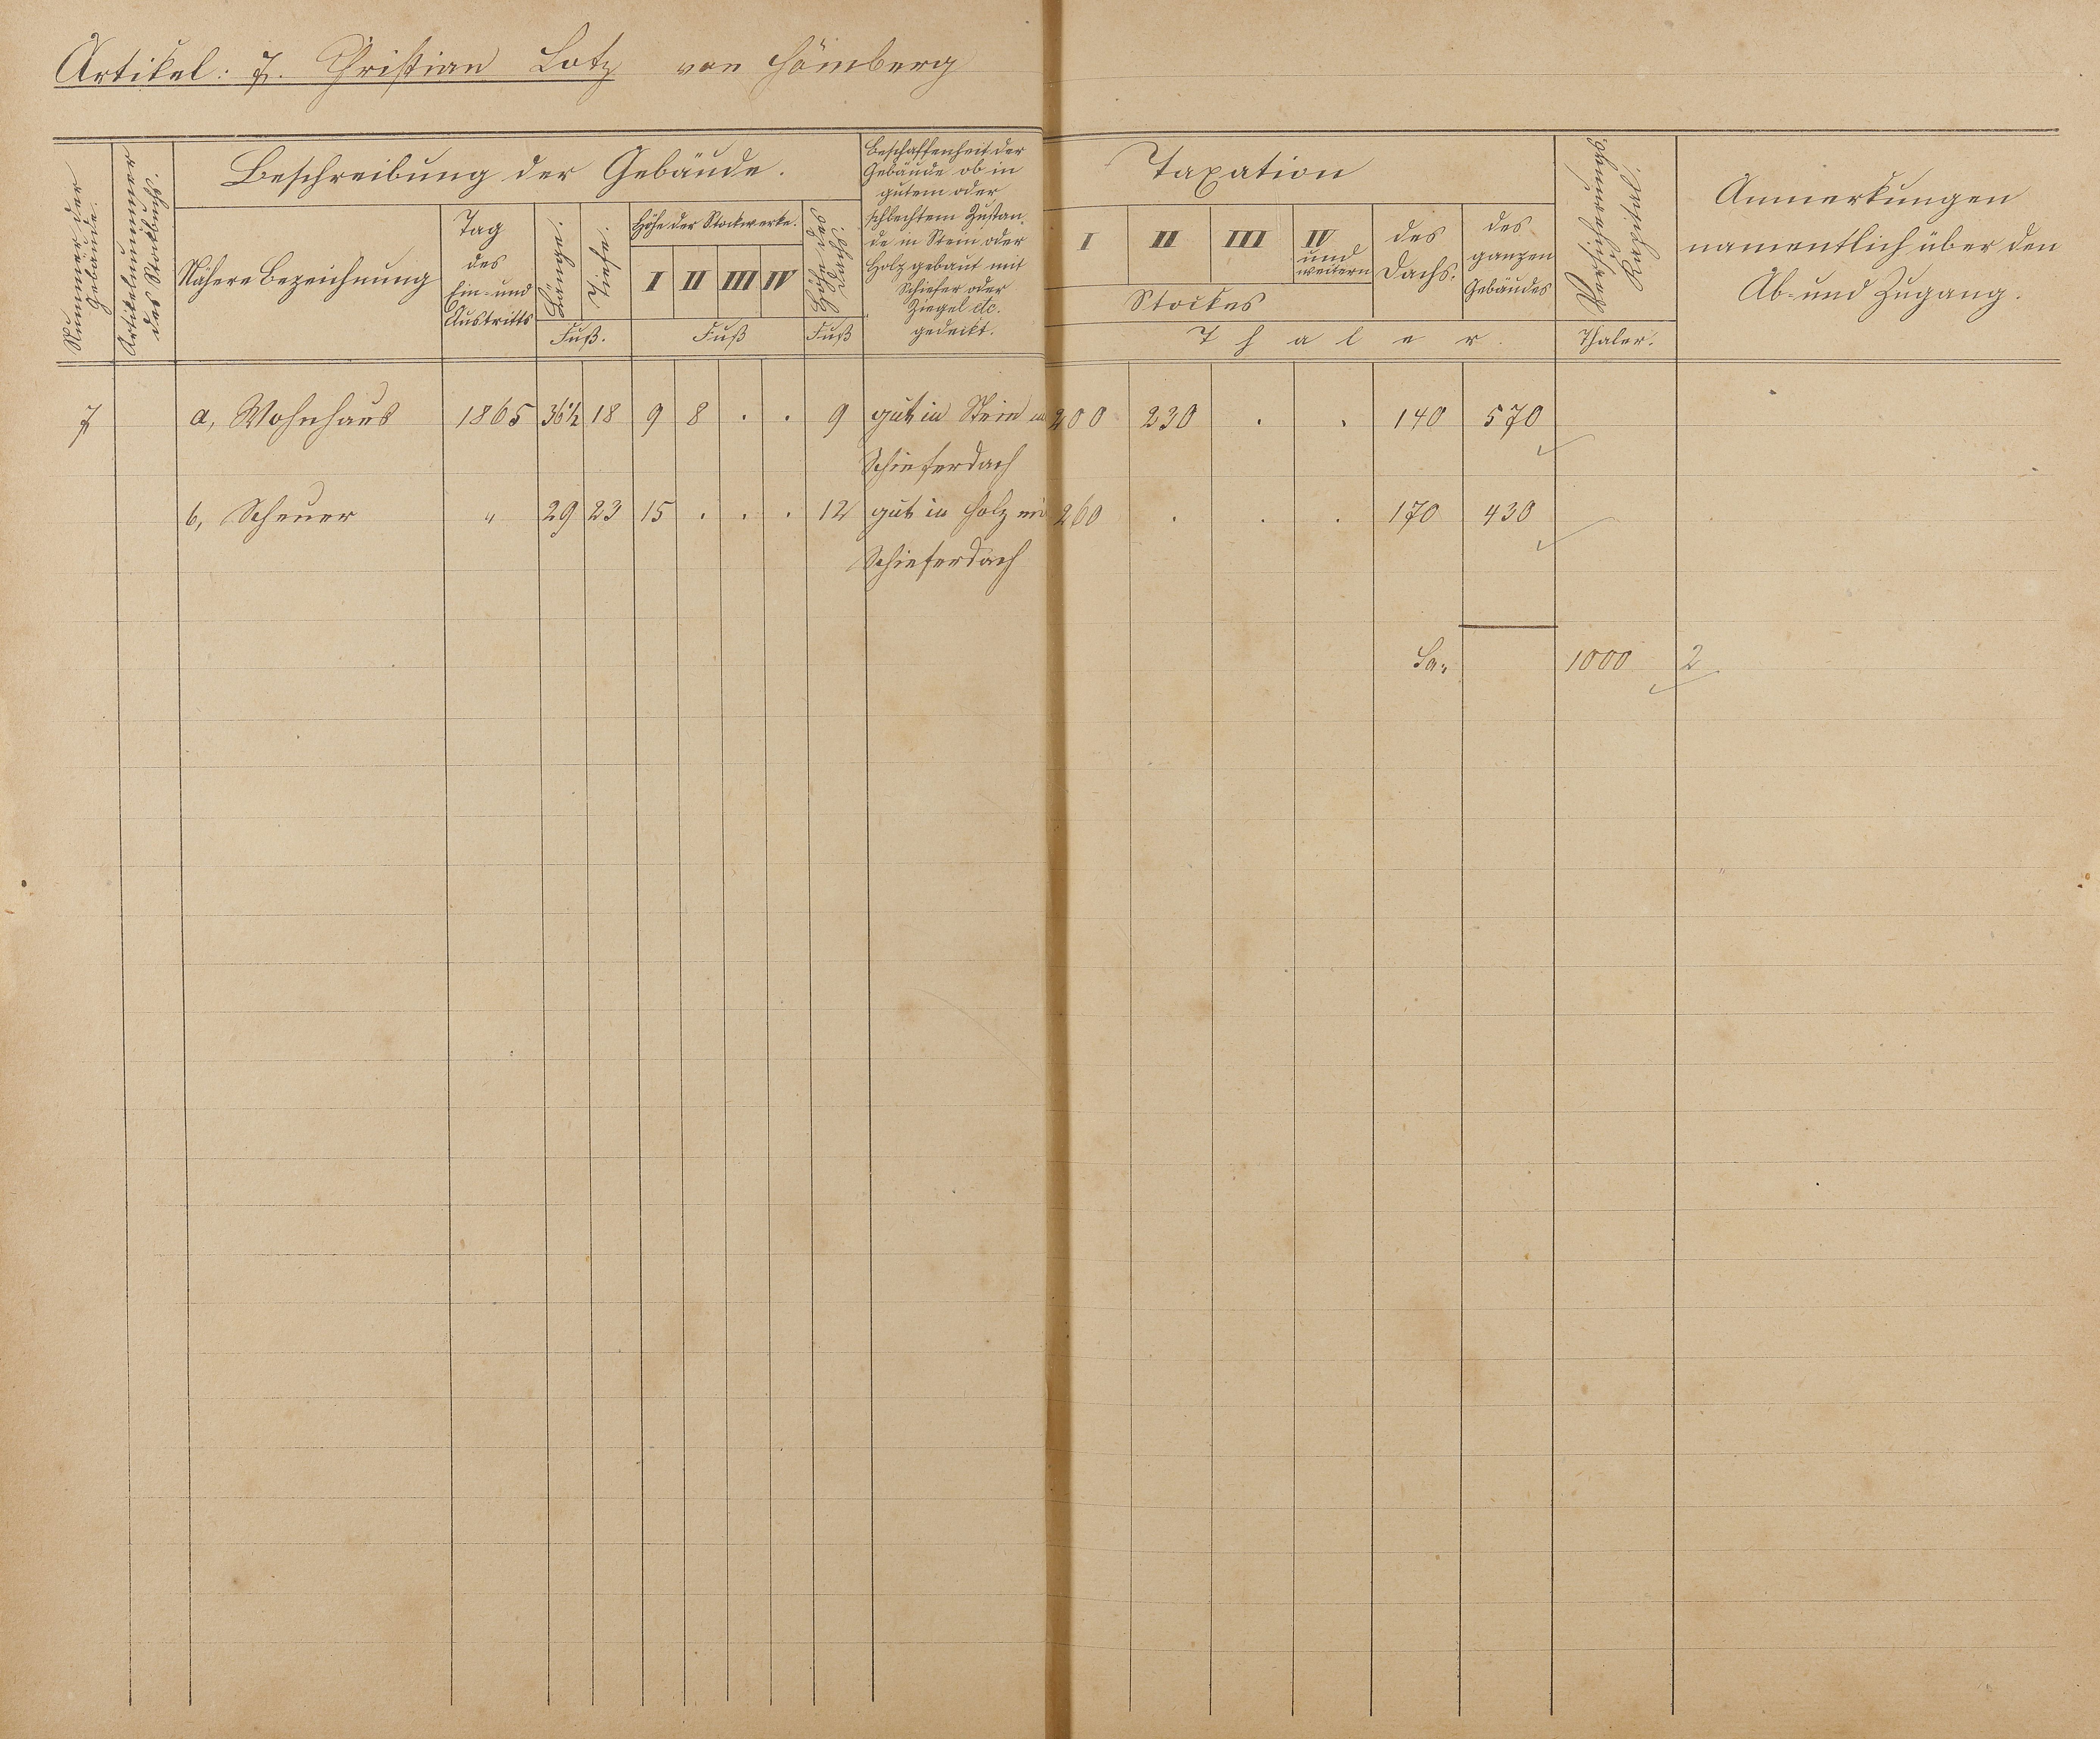 Artikel: 7. Christian Lotz von Hömberg
Nummer der
Gebäude.
Artikelnummer
des Stockbuchs.
Beschreibung der Gebäude.
Nähere Bezeichnung
Tag
des
Ein= und
Austritts
Länge.
Tiefe.
Fuß.
Höhe der Stockwerke.
I II III IV
Fuß
Höhe des
Dachs.
Fuß
Beschaffenheit der
Gebäude ob in
gutem oder
schlechtem Zustan-
de in Stein oder
Holz gebaut mit
Schiefer oder
Ziegel etc.
gedeckt.
Taxation
I II III IV
und
weitern
Stockes
des
Dachs.
des
ganzen
Gebäudes
Thaler.
Thaler.
Anmerkungen
namentlich über den
Ab= und Zugang.
7 a, Wohnhaus 1865 36½ 18 9 8 . . 9 gut in Stein 200 230 . . 140 570
Schieferdach
b, Scheuer " 29 23 15 . . . 12 gut in Holz mi 260 . . . 170 430
Schieferdach
Sa. 1000 2